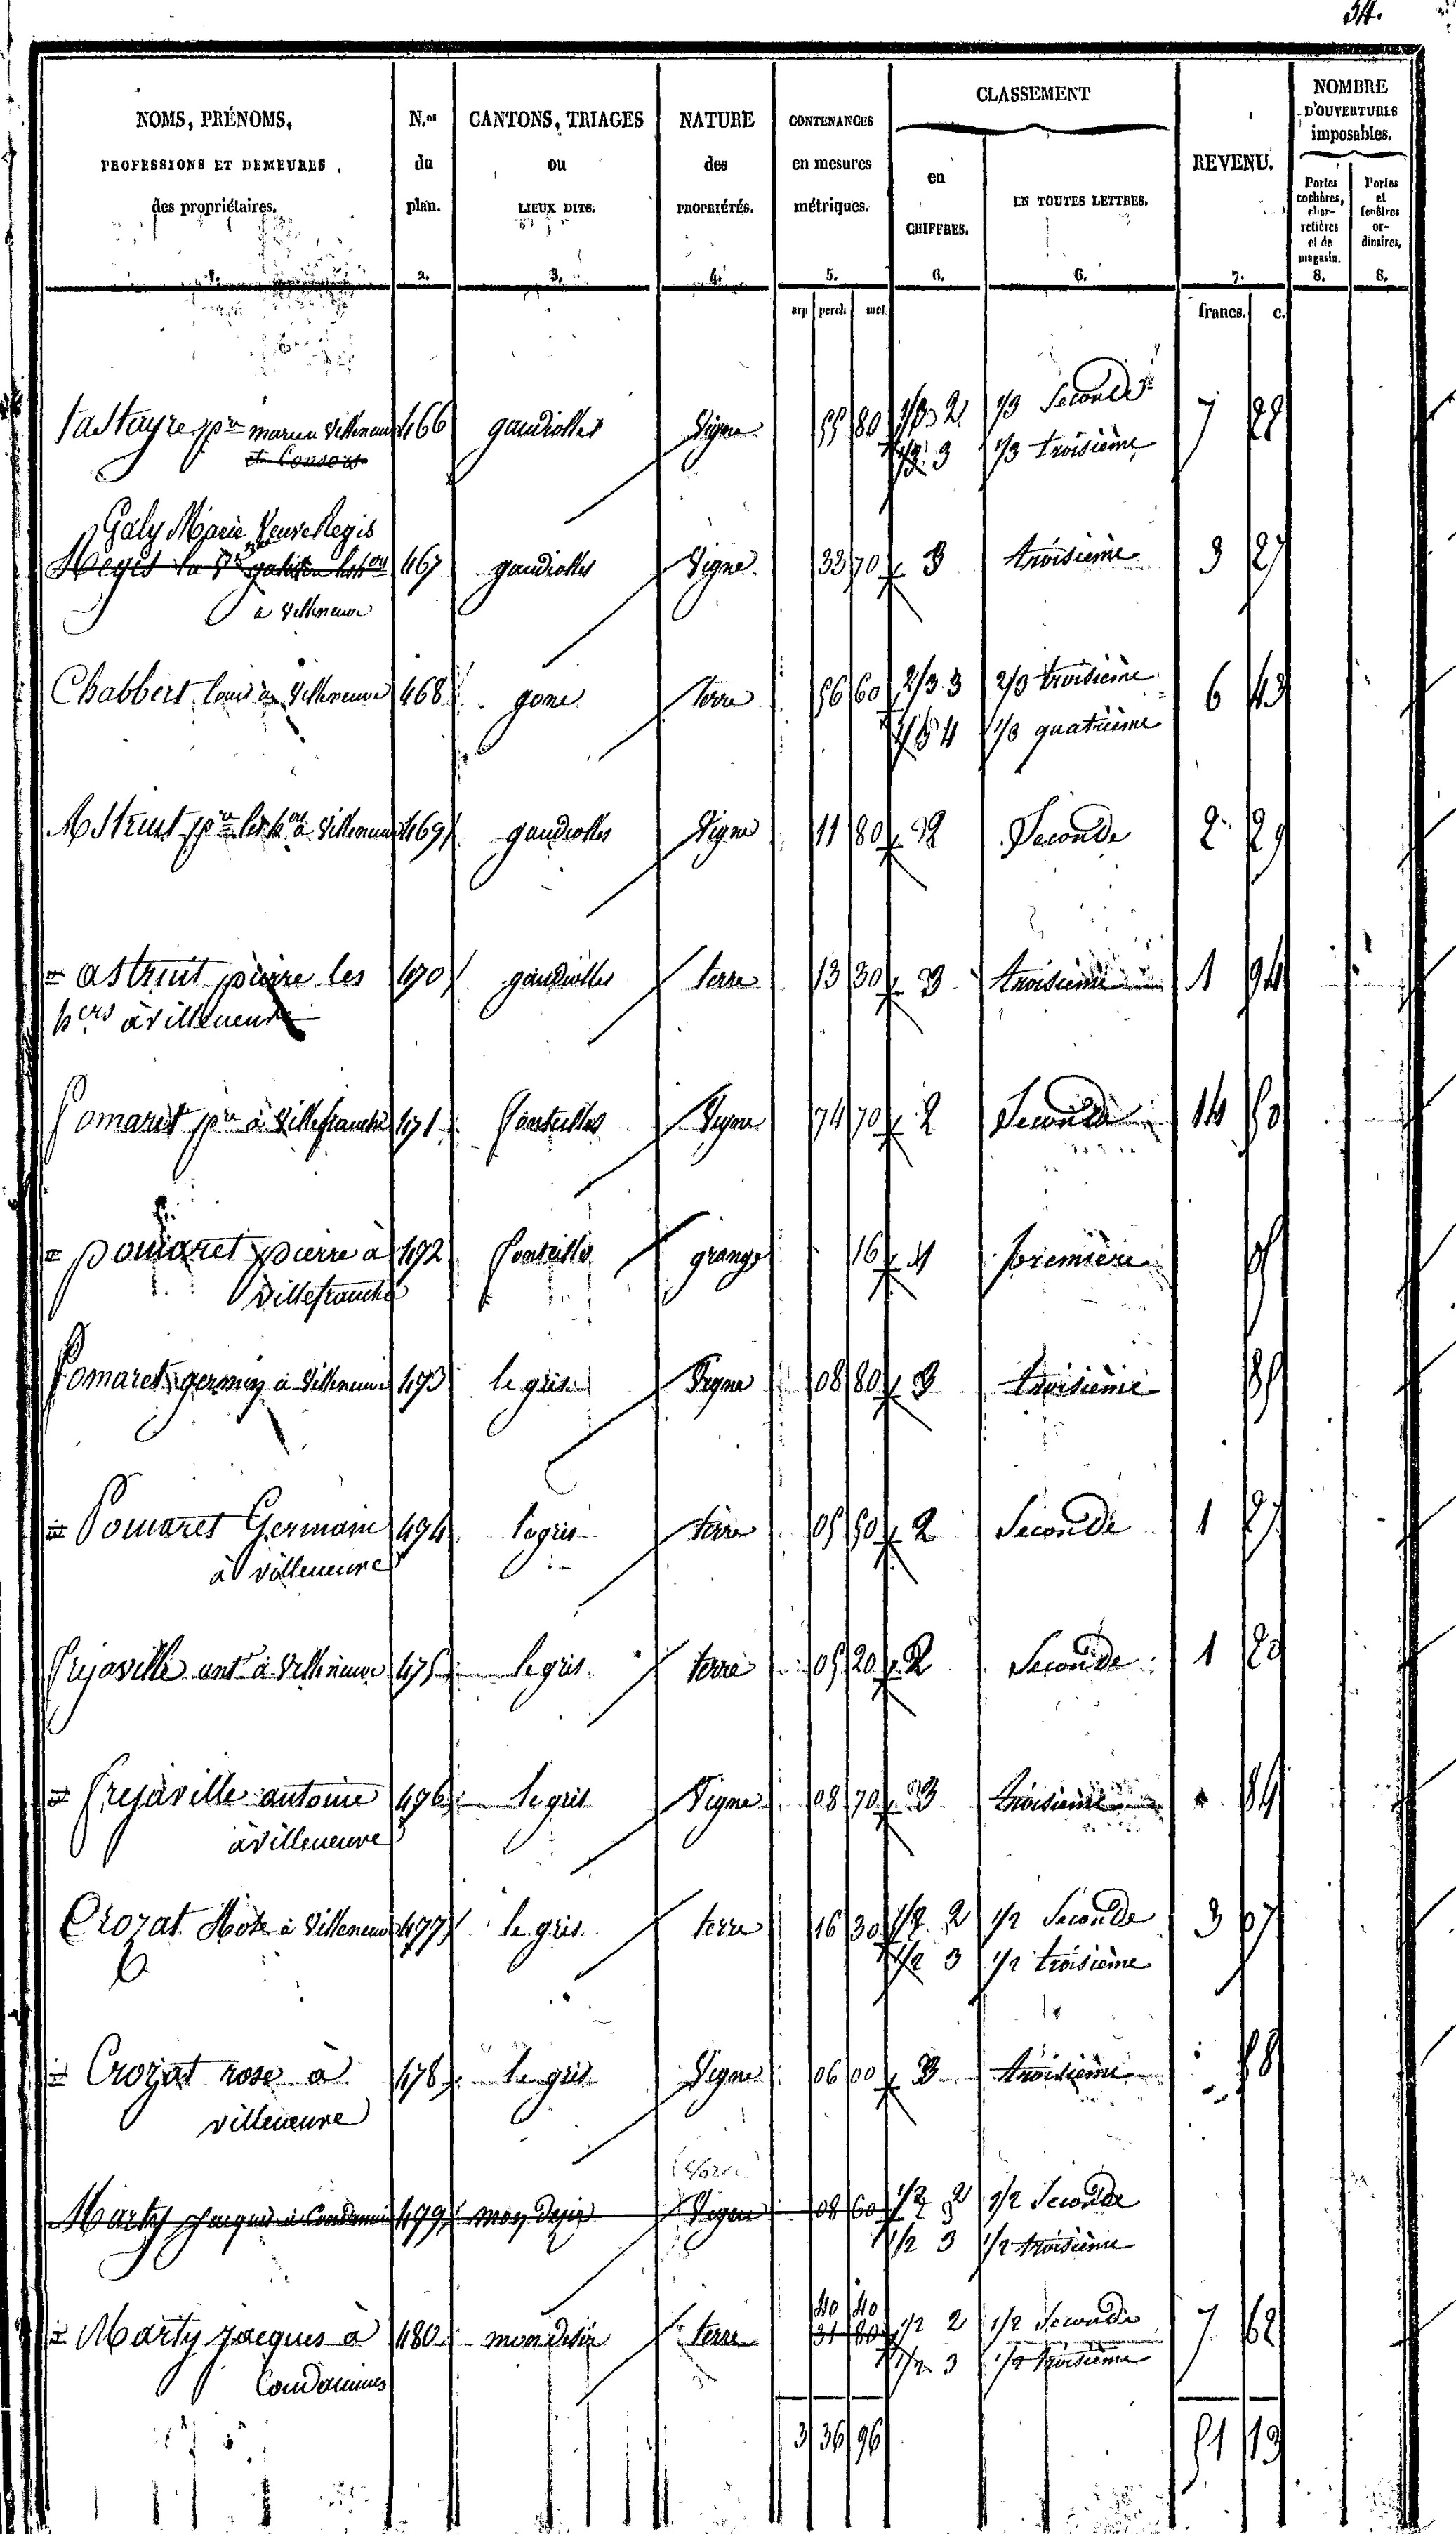 34.
NOMS, PRÉNOMS,
PROFESSIONS ET DEMEURES
des propriétaires.
N.os
du
plan.
CANTONS, TRIAGES
ou
LIEUX DITS.
NATURE
des
PROPRIÉTÉS.
CONTENANCES
en mesures
métriques.
CLASSEMENT
en
CHIFFRES.
EN TOUTES LETTRES.
REVENU.
NOMBRE
D'OUVERTURES
imposables.
Portes
cochères,
char-
retières
et de
magasin.
Portes
et
fenêtres
or-
dinaires.
1. 2. 3. 4. 5. 6. 6. 7. 8. 8.
arp perch met. francs. c.
466 gaudiolles Vigne 55 80 2 1/3 Seconde 7 28
et Consors 3 1/3 troisième
Galy Marie Veuve Regis
Regis la Ve 467 gaudiolles Vigne 33 70 3 troisième 3 27
à Villeneuve
Chabbert Louis à Villeneuve 468 gone terre 56 60 2/3 3 2/3 troisième 6 43
1/3 4 1/3 quatrième
Astruit pre les hers à Villeneuve 469 gaudiolles Vigne 11 80 2 Seconde 2 29
= astruit pierre les 470 gaudiolles terre 13 30 3 troisième 1 94
hers à villeneuve
Pomaret pre à Villefranche 471 fonteilles Vigne 74 70 2 Seconde 14 50
= pomaret pierre à 472 fonteilles grange 16 1 première
villefranche
Pomaret germain à Villeneuve 473 le gris Vigne 08 80 3 troisième 85
= Pomaret Germain 474 le gris terre 05 50 2 Seconde 1 27
à villeneuve
Frejaville ante à Villeneuve 475 le gris terre 05 20 2 Seconde 1 20
= frejaville antoine 476 le gris Vigne 08 70 3 troisième 84
à villeneuve
Crozat Rose à Villeneuve 477 le gris terre 16 30 1/2 2 1/2 Seconde 3 07
1/2 3 1/2 troisième
= Crozat rose à 478 le gris Vigne 06 00 3 troisième 58
villeneuve
terre
Marty Jacques à Condamines 479 mon desir Vigne 08 60 1/2 2 1/2 Seconde
1/2 3 1/2 troisième
40 40
= Marty jacques à 480 mon desir terre 31 80 1/2 2 1/2 Seconde 7 62
Condamines 1/2 3 1/2 troisième
3 36 96 51 13